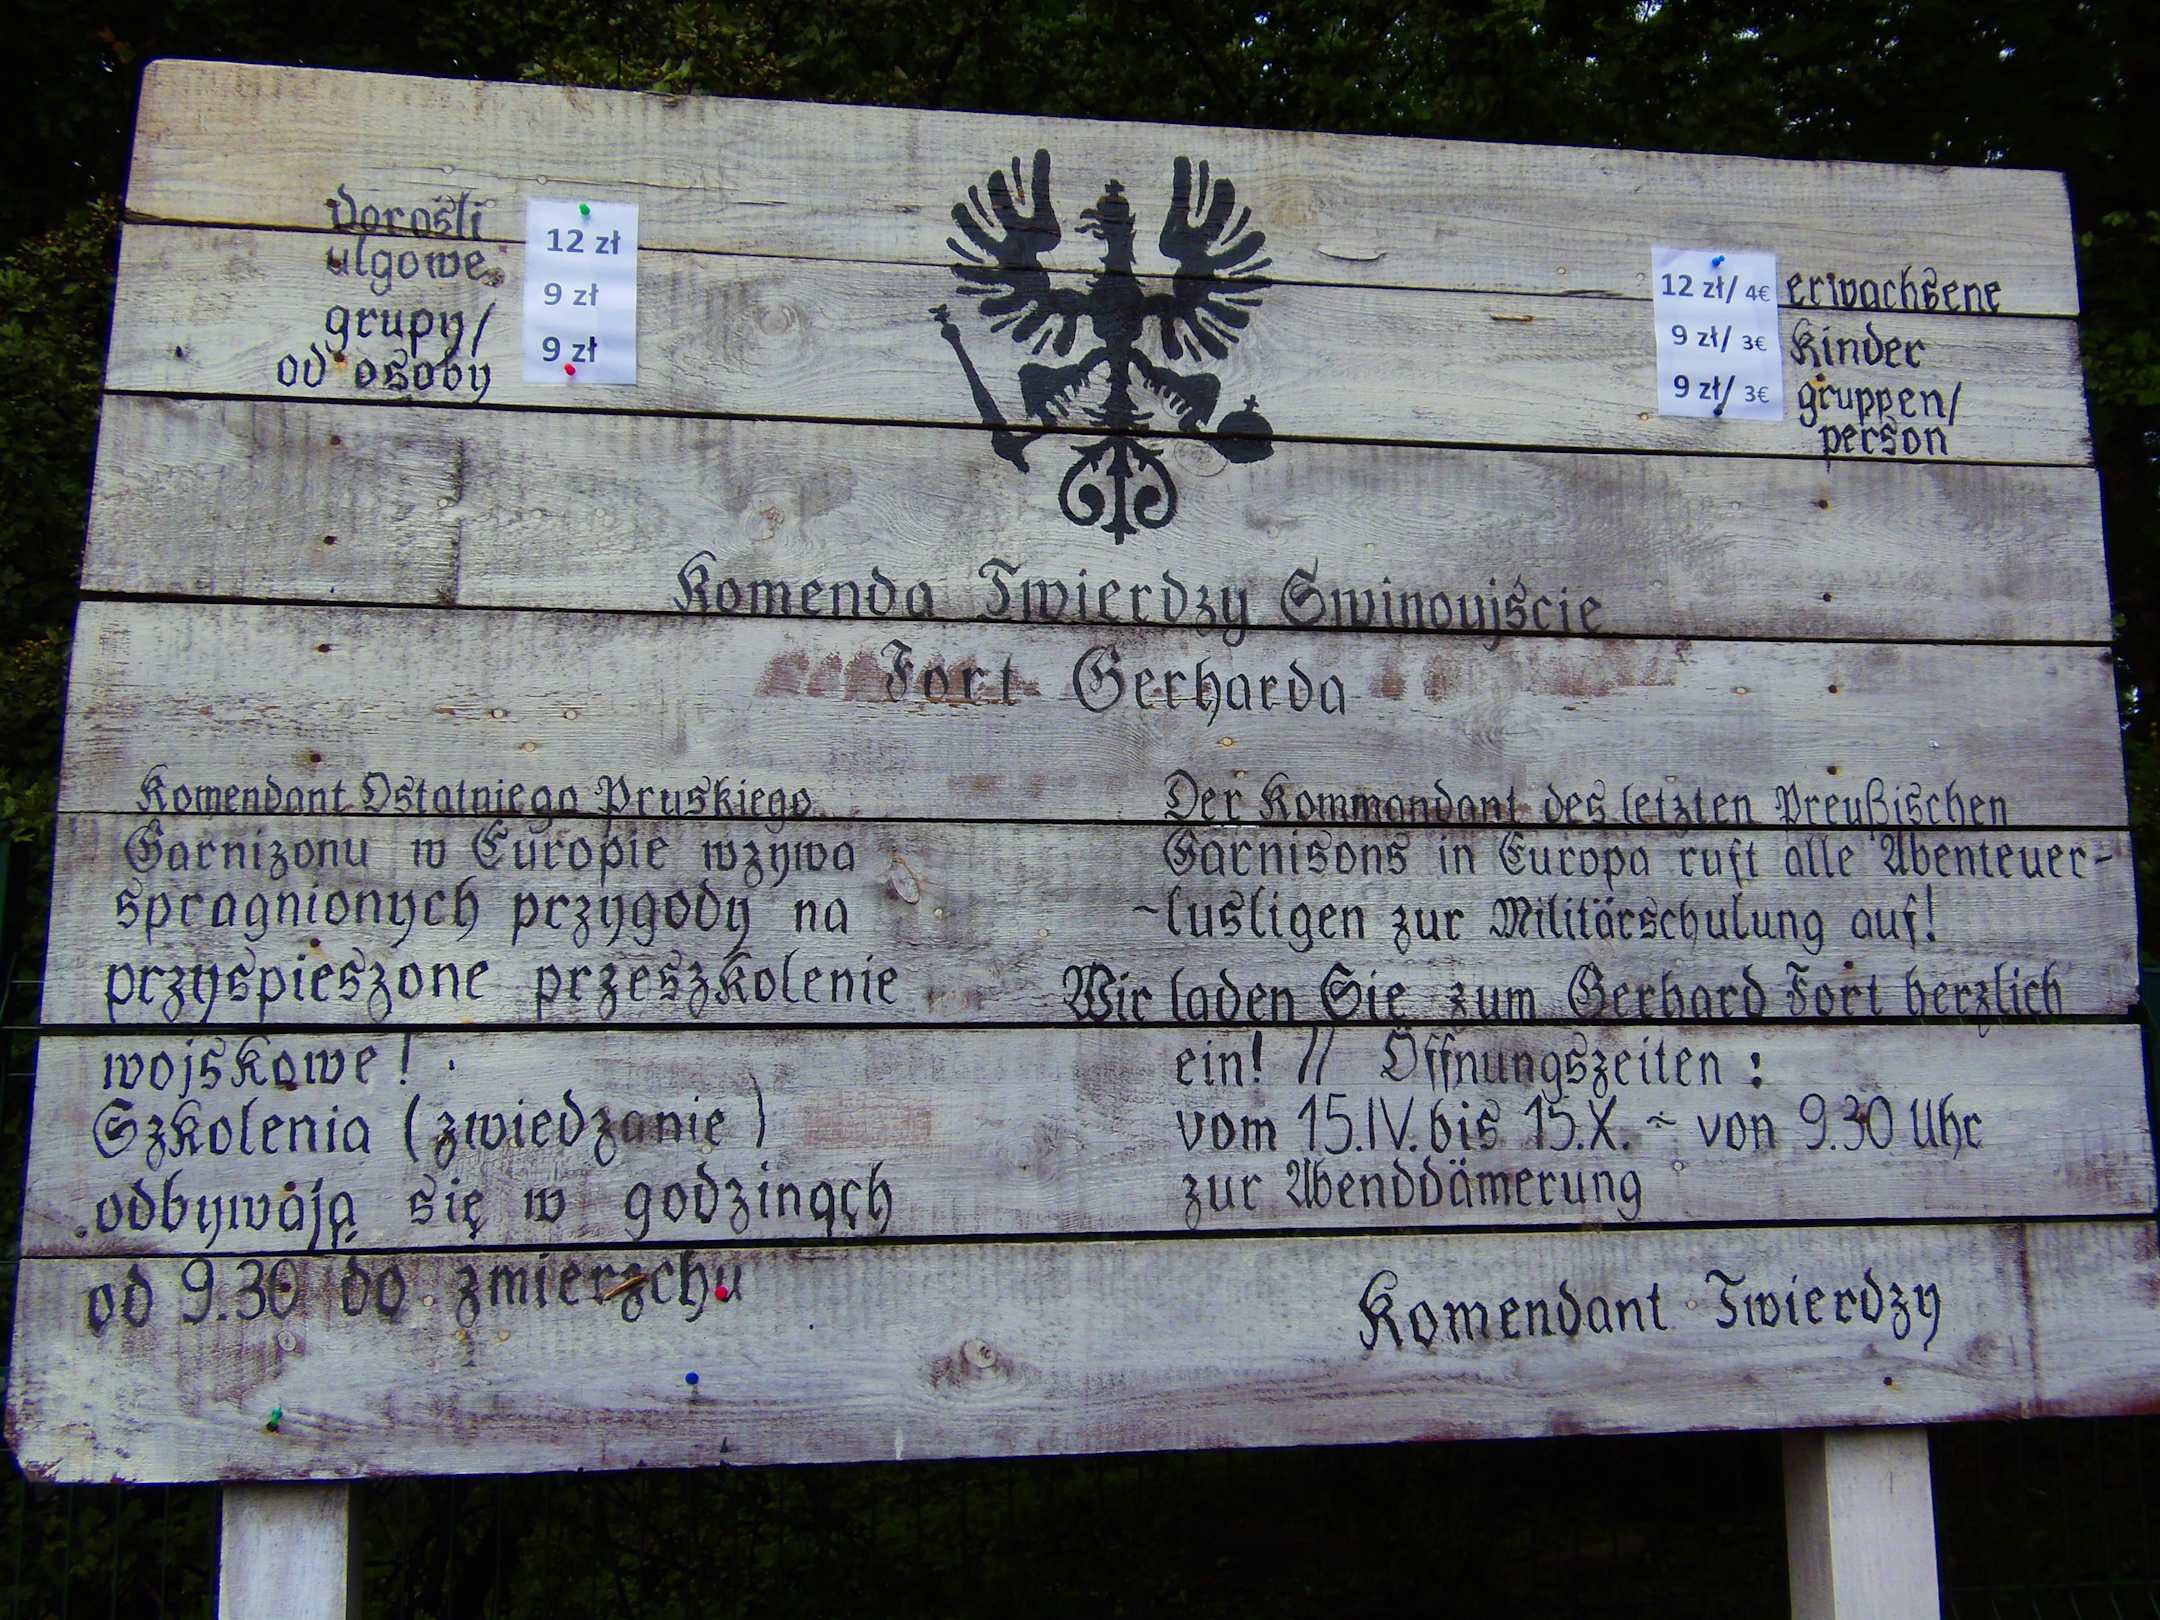 dorośli 12 zł
ulgowe 9 zł
grupy/ 9 zł
od osoby
12 zł/ 4€ erwachsene
9 zł/ 3€ Kinder
9 zł/ 3€ gruppen/
person
Komenda Twierdzy Świnoujście
Fort Gerharda
Komendant Ostatniego Pruskiego
Garnizonu w Europie wzywa
spragnionych przygody na
przyspieszone przeszkolenie
wojskowe!
Szkolenia (zwiedzanie)
odbywają się w godzinach
od 9.30 do zmierzchu
Der Kommandant des letzten Preußischen
Garnisons in Europa ruft alle Abenteuer-
~lusligen zur Militärschulung auf!
Wir laden Sie zum Gerhard Fort herzlich
ein! // Öffnungszeiten :
vom 15.IV. bis 15.X. ~ von 9.30 Uhr
zur Abenddämerung
Komendant Twierdzy